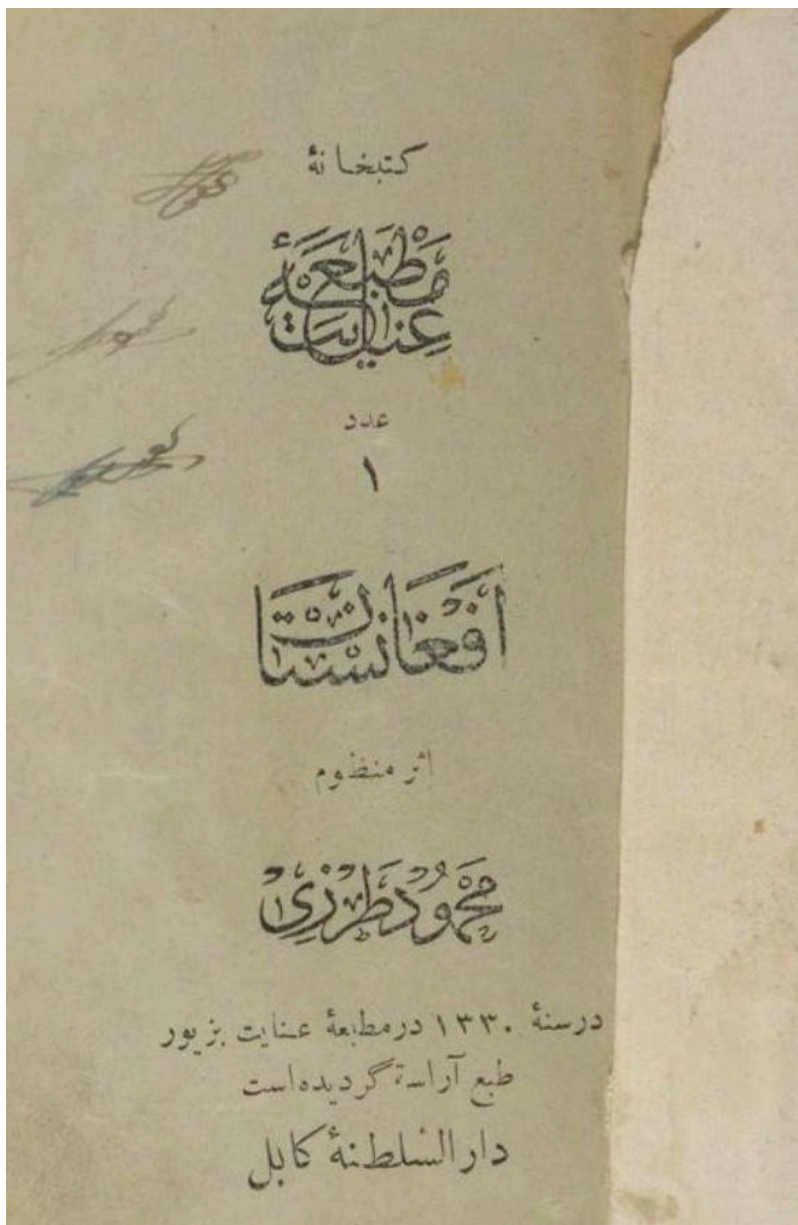 كتبخانهٔ
مَطْبَعَهٔ
عِنَايَت
عدد
١
افغانستان
اثر منظوم
محمود طرزی
درسنهٔ ١٣٣٠ درمطبعهٔ عنایت بزیور
طبع آراسته گردیده است
دار السلطنهٔ کابل